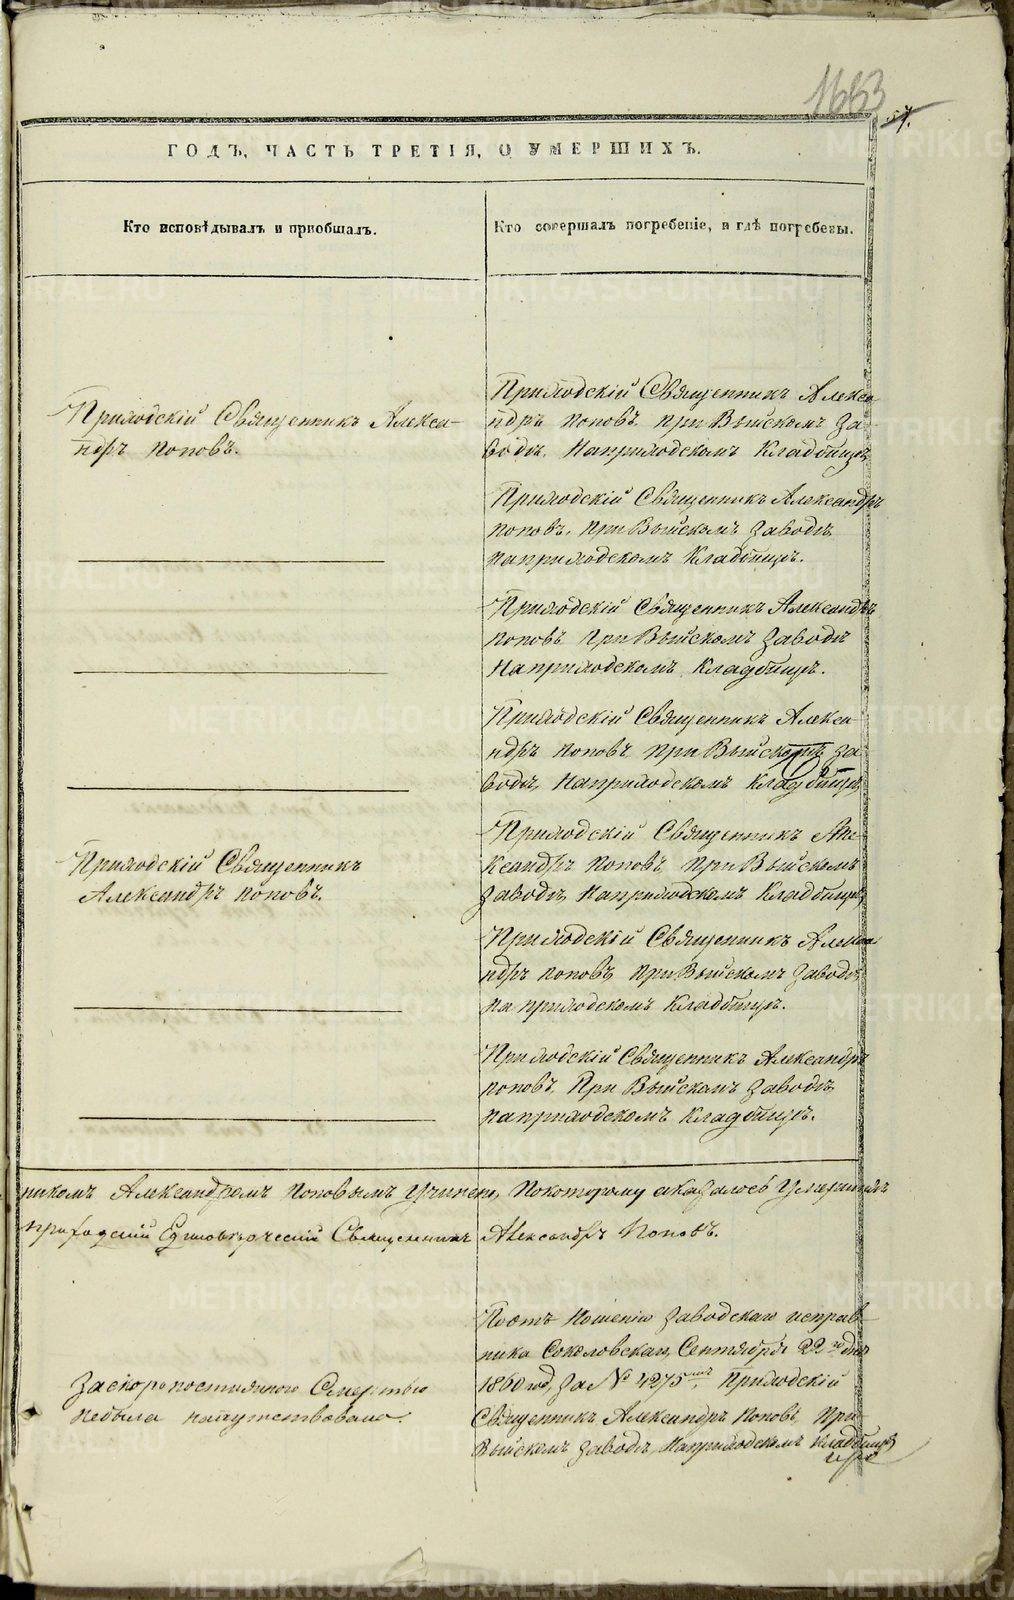 1663
57.
ГОДЪ, ЧАСТЬ ТРЕТІЯ, О УМЕРШИХЪ.
Кто исповѣдывалъ и пріобщалъ.
Кто совершалъ погребеніе, и гдѣ погребены.
Приходскій Священникъ Алекса-
ндръ Поповъ.
Приходскій Священникъ Алекса
ндръ Поповъ, при Выйскомъ За-
водѣ, На приходскомъ Кладбищѣ
Приходскій Священникъ Александръ
Поповъ, при Выйскомъ Заводѣ
На приходскомъ Кладбищѣ.
Приходскій Священникъ Александръ
Поповъ при Выйскомъ Заводѣ
На приходскомъ Кладбищѣ.
Приходскій Священникъ Алекса
ндръ Поповъ, при Выйскомъ За-
водѣ, На приходскомъ Кладбищѣ
Приходскій Священникъ
Александръ Поповъ.
Приходскій Священникъ Але-
ксандръ Поповъ, при Выйскомъ
Заводѣ, На приходскомъ Кладбищѣ
Приходскій Священникъ Алекса
ндръ Поповъ, при Выйскомъ Заводѣ
На приходскомъ Кладбищѣ.
Приходскій Священникъ Александръ
Поповъ, При Выйскомъ Заводѣ
На приходскомъ Кладбищѣ.
никомъ Александромъ Поповымъ Учинено, По которому оказалось Умершихъ
Приходскій Единовѣрческій Священникъ Александръ Поповъ.
За скоропостижною Смертью
Небыла напутствована.
По отношенію Заводскаго исправ-
ника Соколовскаго, Сентября 22го дня
1860 год. За № 4275мъ. Приходскій
Священникъ Александръ Поповъ, При
Выйскомъ Заводѣ, На приходскомъ Кладбищѣ
METRIKI.GASO-URAL.RU